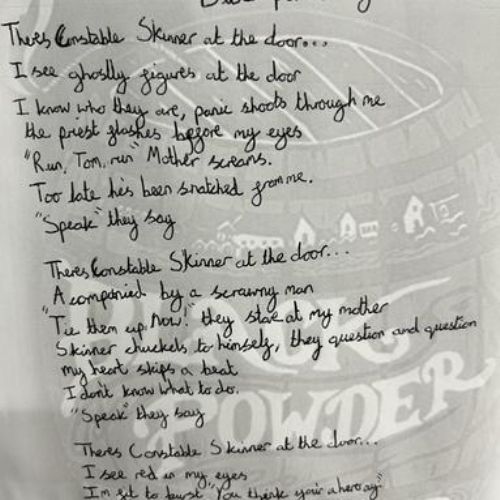 Theres Constable Skinner at the door...
I see ghostly figures at the door
I know who they are, panic shoots through me
the priest flashes before my eyes
"Run, Tom, run" Mother screams.
Too late he's been snatched from me.
"Speak" they say
Theres Constable Skinner at the door...
Acompanied by a scrawny man
"Tie them up, Now!" they stare at my mother
Skinner chuckels to himself, they question and question
my heart skips a beat
I don't know what to do.
"Speak" they say
Theres Constable Skinner at the door...
I see red in my eyes
I'm fit to burst "You think your a hero ay"
BLACK
POWDER